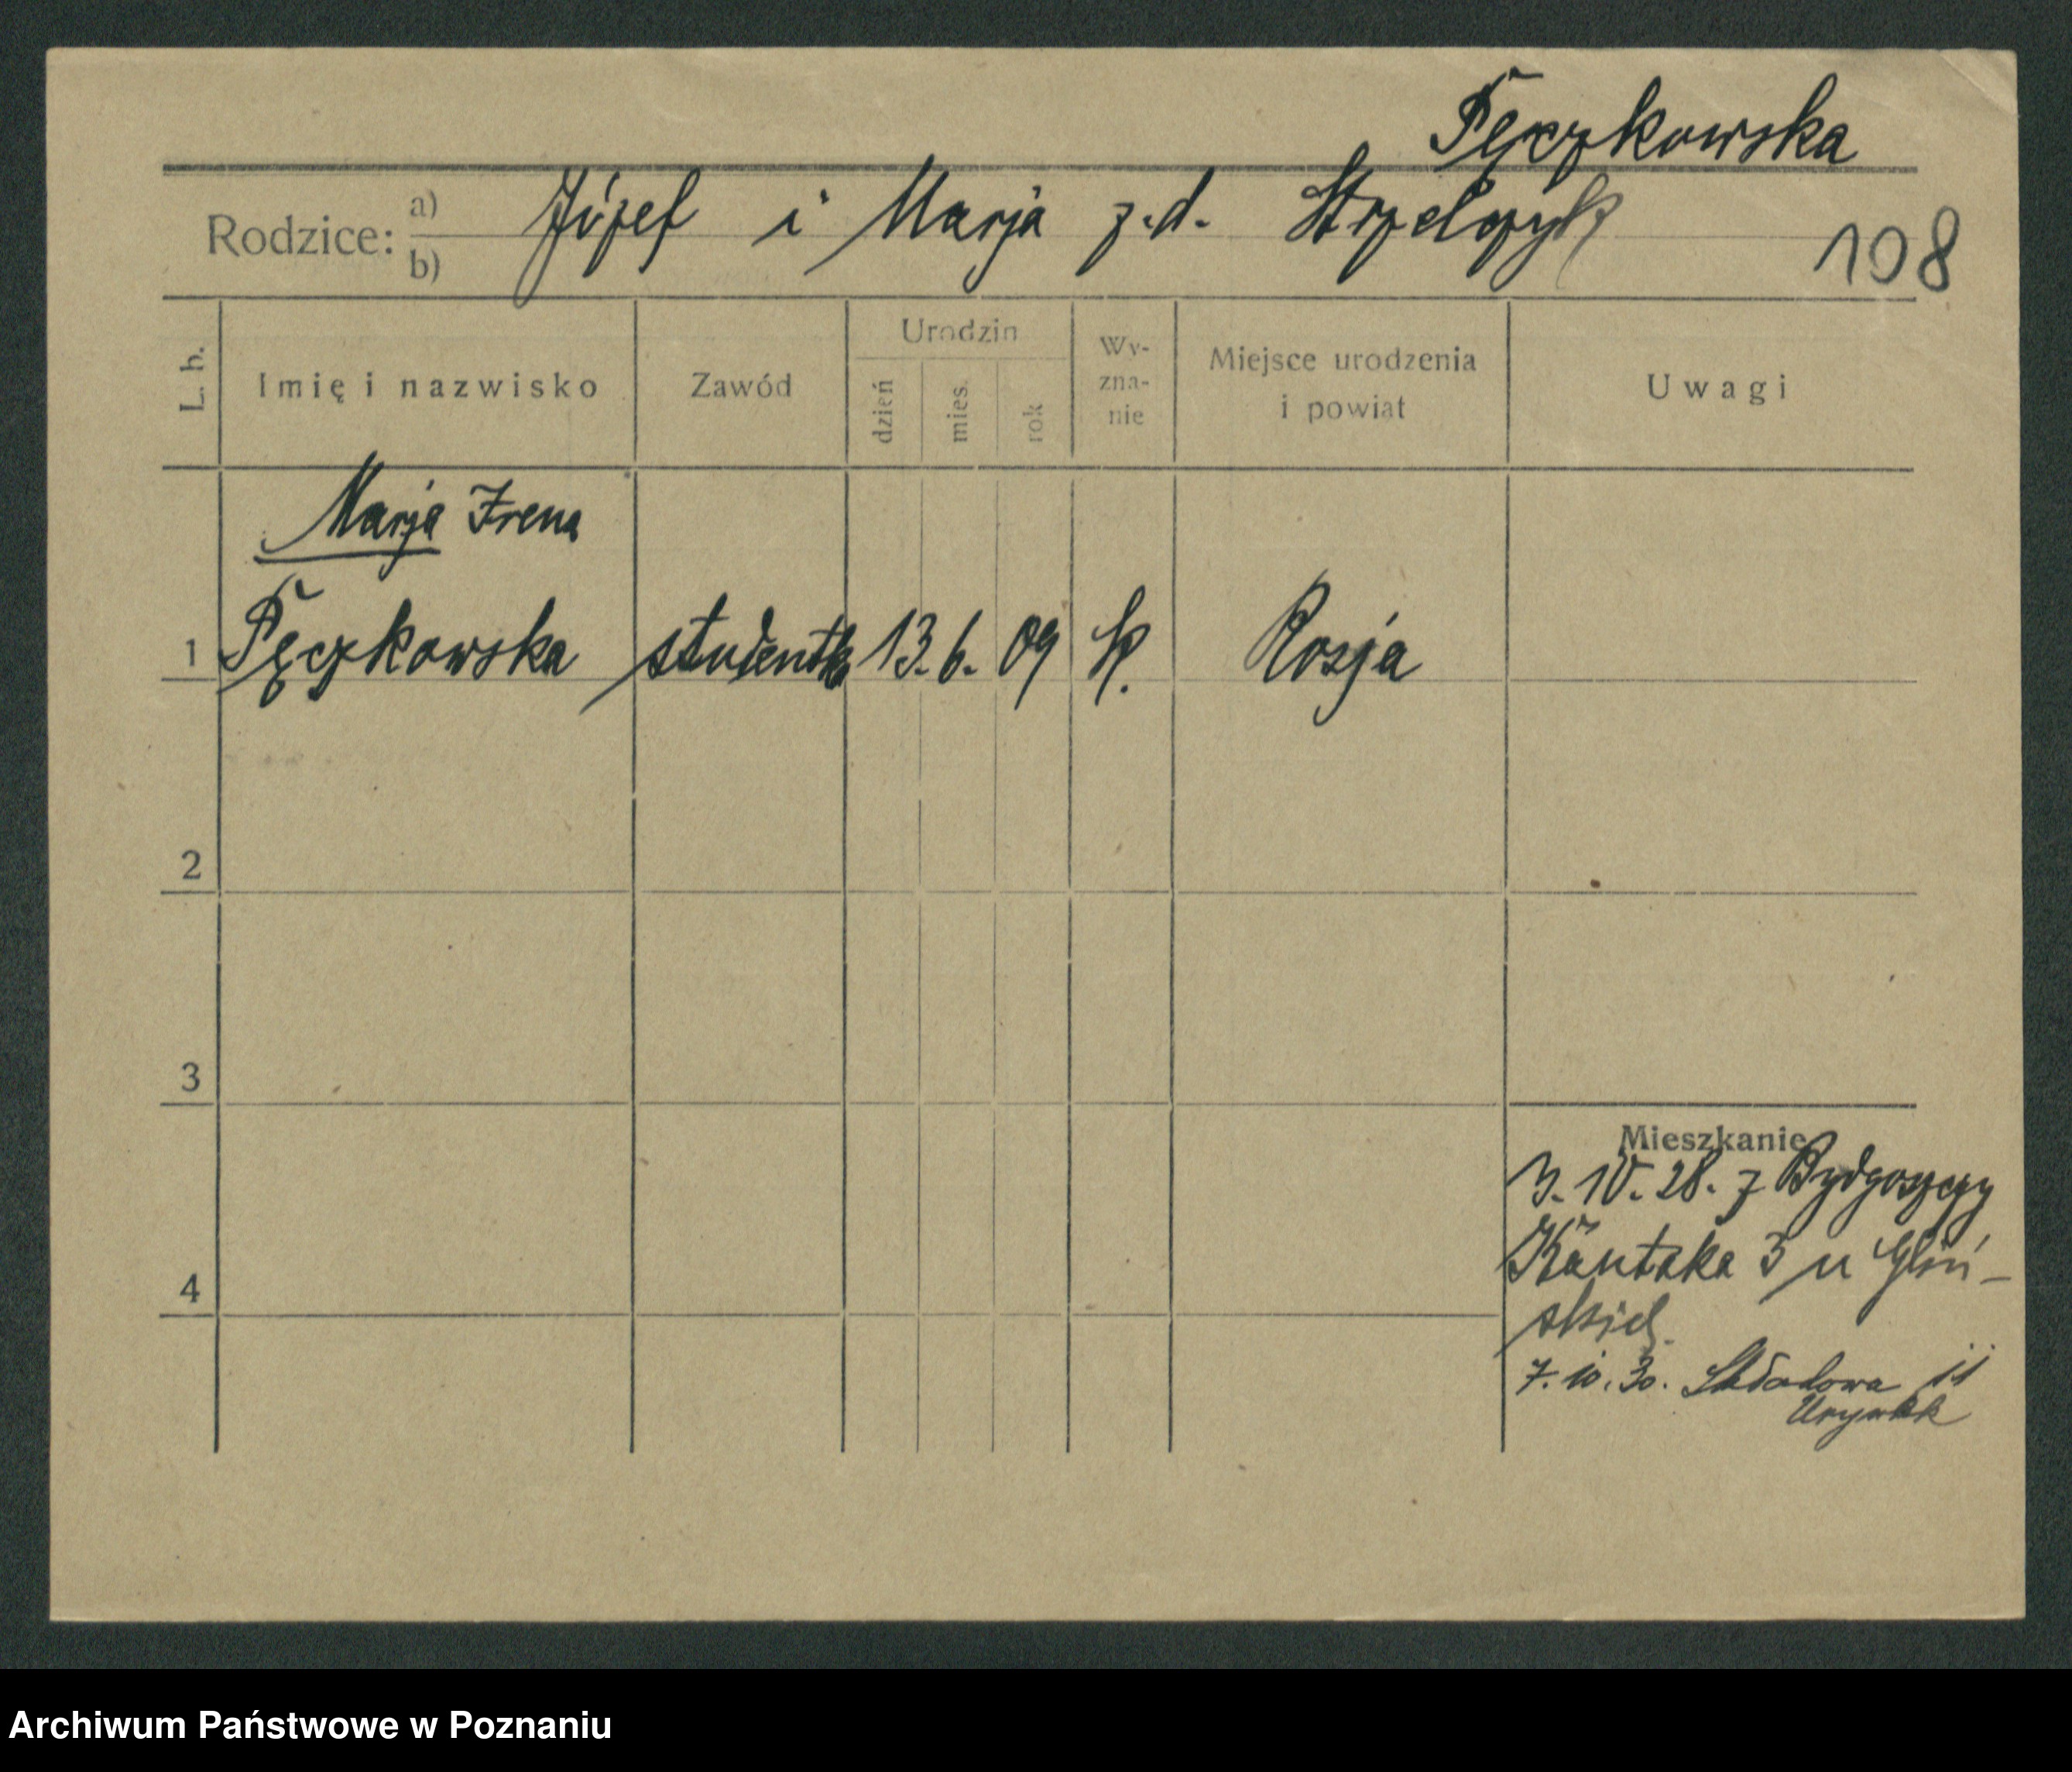 Pęczkowska
Rodzice: a) b) Józef i Marja z.d. Strzelczyk
108
L. b.
Imię i nazwisko
Zawód
Urodzin
dzień
mies.
rok
Wy-
zna-
nie
Miejsce urodzenia
i powiat
Uwagi
Marja Irena
1 Pęczkowska studentka 13. 6. 09 k. Rosja
2
3
4
Mieszkanie
3. IV. 28. z Bydgoszczy
Kantaka 3 u Gliń-
skiej.
7. 10. 30. Składowa 11
Archiwum Państwowe w Poznaniu